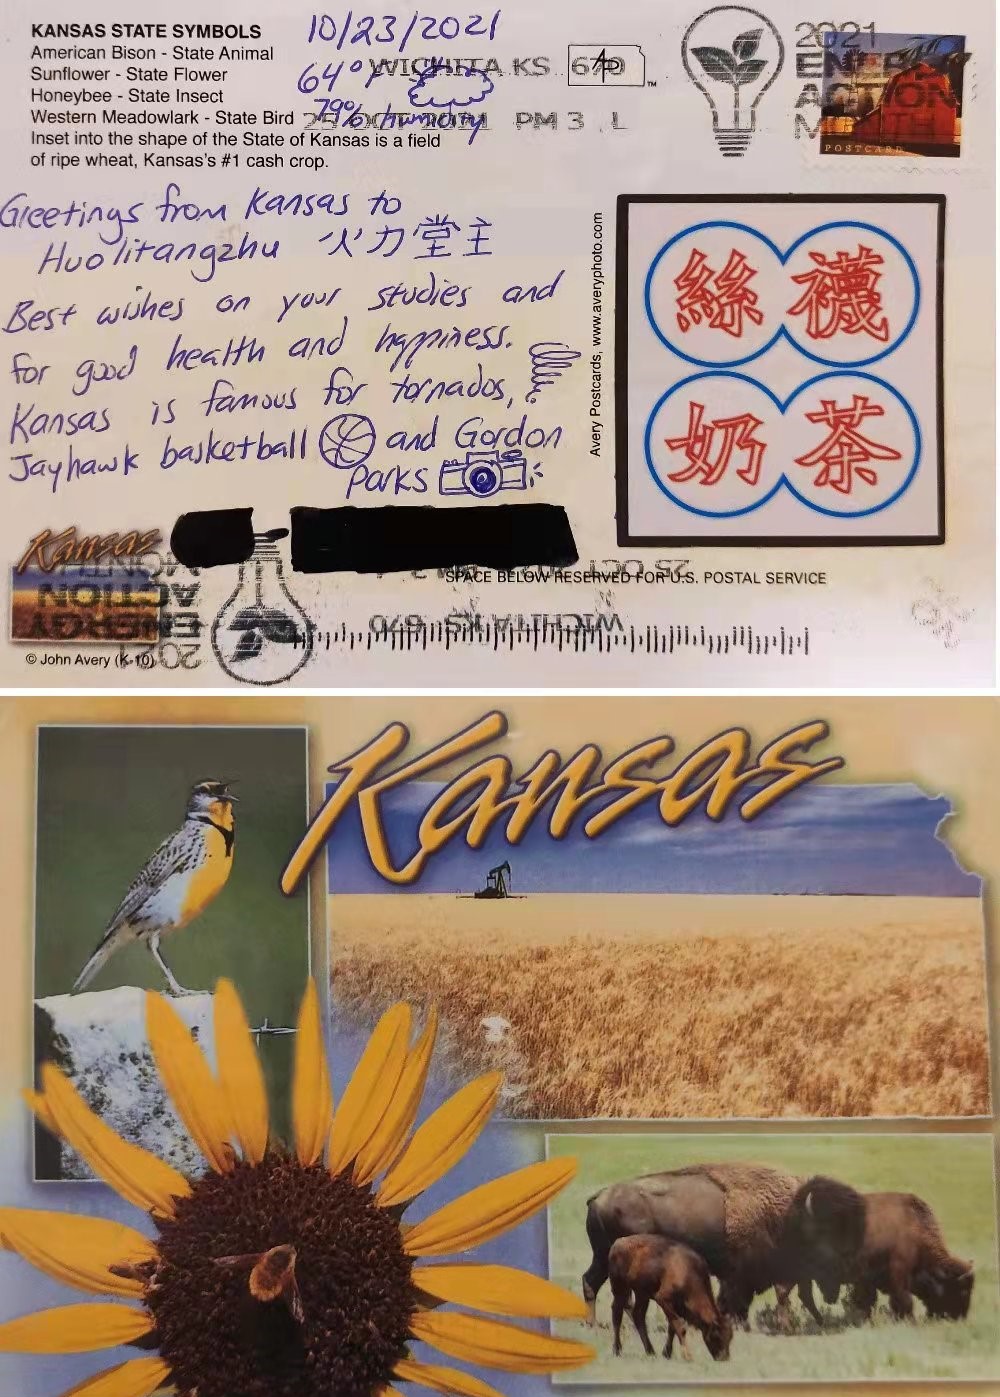 KANSAS STATE SYMBOLS
American Bison - State Animal
Sunflower - State Flower
Honeybee - State Insect
Western Meadowlark - State Bird
Inset into the shape of the State of Kansas is a field
of ripe wheat, Kansas's #1 cash crop.
10/23/2021
64°F
79% humidity
WICHITA KS 670
25 OCT 2021 PM 3 L
2021
ENERGY
ACTION
MONTH
POSTCARD
Greetings from Kansas to
Huolitangzhu 火力堂主
Best wishes on your studies and
for good health and happiness.
Kansas is famous for tornados,
Jayhawk basketball and Gordon
Parks
Avery Postcards, www.averyphoto.com
絲襪
奶茶
Kansas
SPACE BELOW RESERVED FOR U.S. POSTAL SERVICE
25 OCT
WICHITA KS 670
2021
ENERGY
ACTION
MONTH
© John Avery (K-10)
Kansas